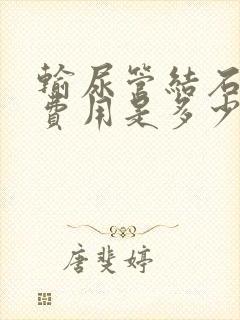 輸尿管結石
費用是多少
唐斐婷